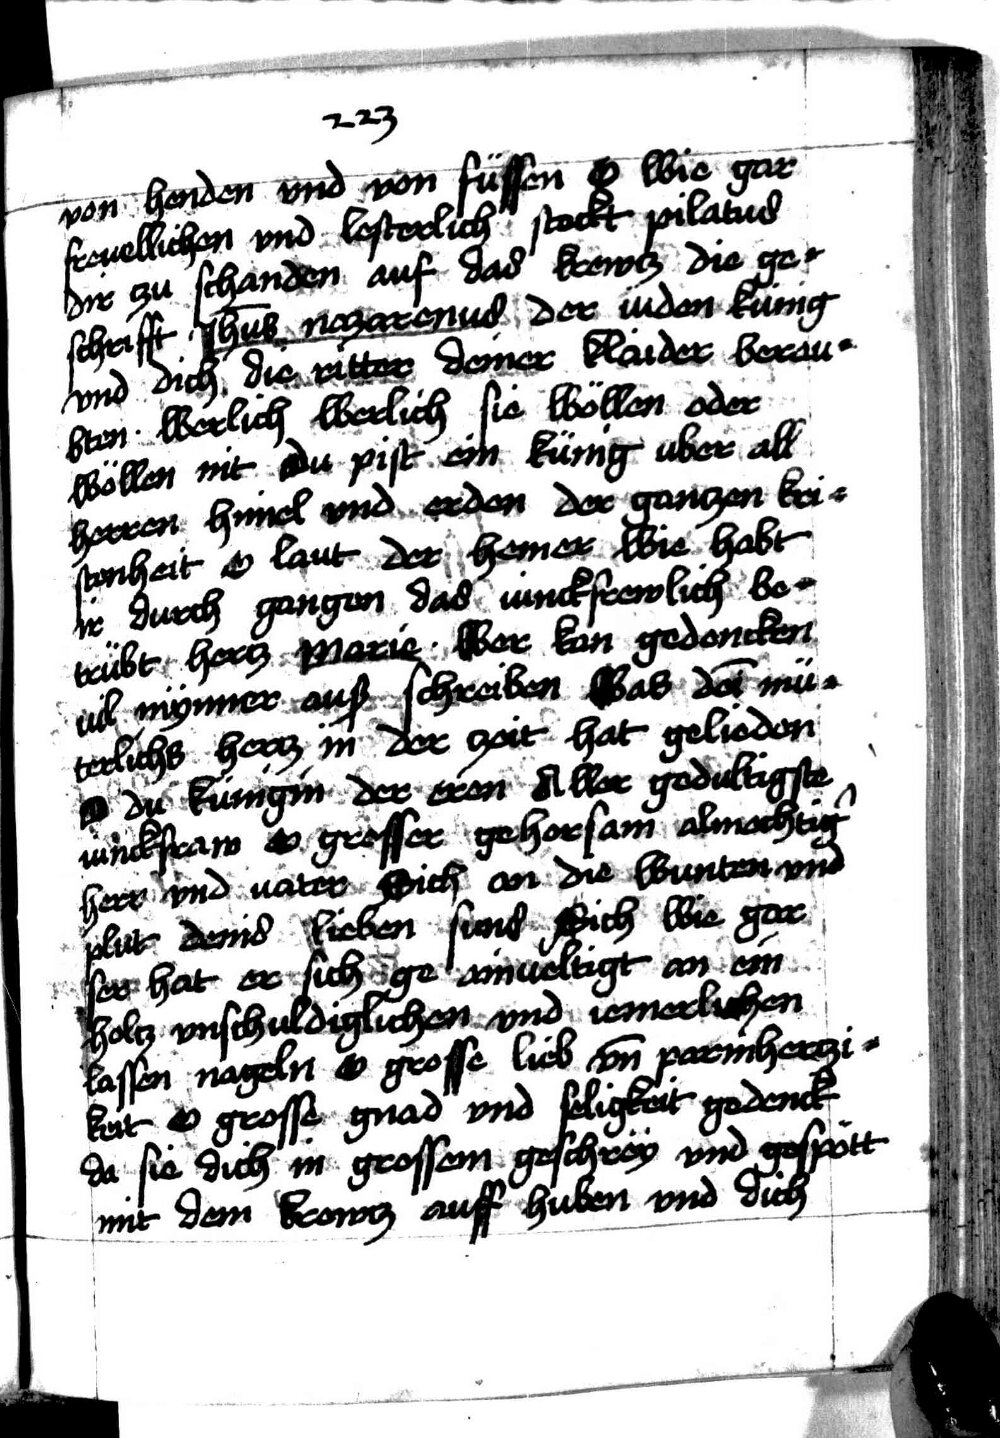 223
von henden vnd von füssen O wie gar
freuellichen vnd lesterlich steckt pilatus
dir zu schanden auf das krewtz die ge-
schrifft Jhūs nazarenus der iuden künig
vnd dich die ritter deiner klaider berau-
bten · Werlich Werlich sie wöllen oder
wöllen nit Du pist ein künig uber all
herren himel vnd erden der gantzen kri-
stenheit O laut der hemer wie habt
ir durch gangen das iunckfrewlich be-
trübt hertz Marie · Wer kan gedencken
uil mynner auß schreiben Was dei mü-
terlichs hertz in der zeit hat gelieden
O du künigin der eren Aller gedultigste
iunckfraw O grosser gehorsam almechtig
herr vnd uater Sich an die wunten vnd
plut deins lieben suns Sich wie gar
ser hat er sich ge ainueltigt an ein
holtz vnschuldiglichen vnd iemerlichen
lassen nageln O grosse lieb vn̄ parmhertzi-
keit O grosse gnad vnd seligkeit gedenck
da sie dich in grossem geschrëy vnd gespött
mit dem krewtz auff huben vnd dich